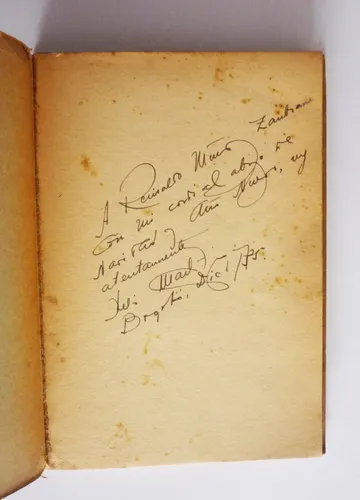 A Reinaldo Muñoz Zambrano
Con un cordial abzo. de
Navidad y Año Nuevo, muy
atentamente
Bogotá, Dic 1/75.